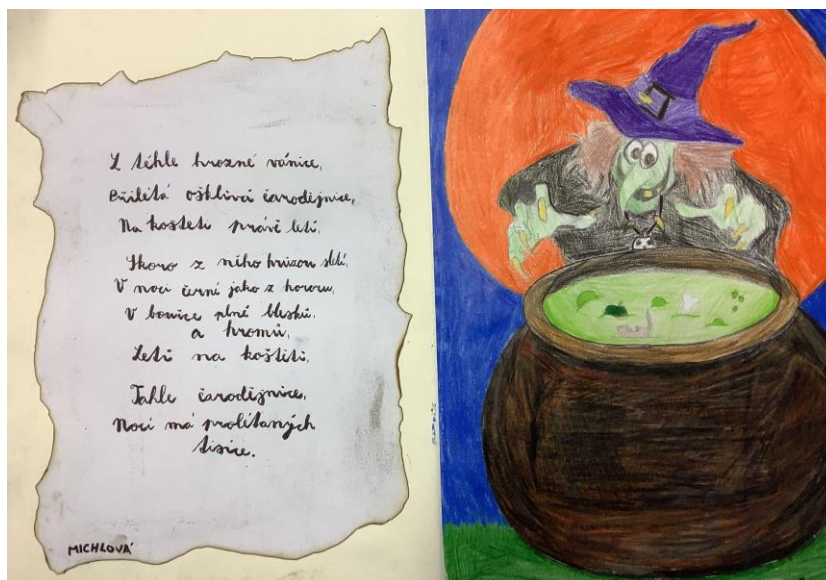 Z téhle hrozné vánice,
Přilétá ošklivá čarodějnice,
Na koštěti právě letí,
Skoro z něho hrůzou sletí,
V noci černé jako z hororu,
V bouřce plné blesků
a hromů,
Letí na koštěti,
Tahle čarodějnice,
Nocí má prolétaných
tisíce.
MICHLOVÁ